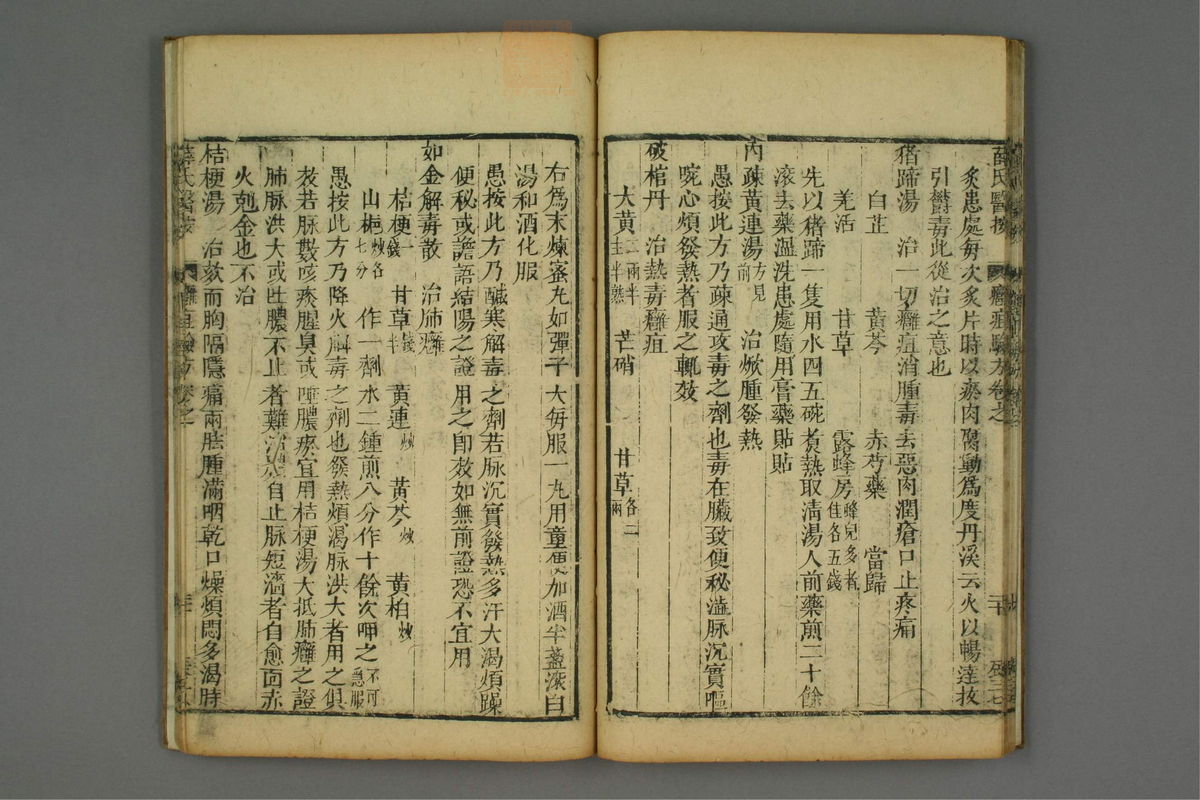 薛氏醫按
癰疽驗方卷之一
二十
炙患處每次炙片時以瘀肉腐動為度丹溪云火以暢達拔
引鬱毒此從治之意也
猪蹄湯 治一切癰疽消腫毒去惡肉潤瘡口止疼痛
白芷 黃芩 赤芍藥 當歸
羌活 甘草 露蜂房蜂兒多者佳各五錢
先以猪蹄一隻用水四五碗煮熱取清湯人前藥煎二十餘
滾去藥溫洗患處隨用膏藥貼貼
內疎黃連湯方見前 治焮腫發熱
愚按此方乃疎通攻毒之劑也毒在臟致便秘溢脉沉實嘔
啘心煩發熱者服之輒效
破棺丹 治熱毒癰疽
大黃二兩半半熟 芒硝 甘草各二兩
右為末煉蜜丸如彈子大每服一丸用童便加酒半盞滾白
湯和酒化服
愚按此方乃醎寒解毒之劑若脉沉實發熱多汗大渴煩躁
便秘或譫語結陽之證用之即效如無前證恐不宜用
如金解毒散 治肺癰
桔梗一錢 甘草錢半 黃連炒 黃芩炒 黃柏炒
山梔炒各七分 作一劑水二鍾煎八分作十餘次呷之不可急服
愚按此方乃降火解毒之劑也發熱煩渴脉洪大者用之俱
效若脉數咳痰腥臭或唾膿瘀宜用桔梗湯大抵肺癰之證
肺脉洪大或吐膿不止者難治膿自止脉短濇者自愈面赤
火剋金也不治
桔梗湯 治欬而胸隔隱痛兩胠腫滿咽乾口燥煩悶多渴時
薛氏醫按